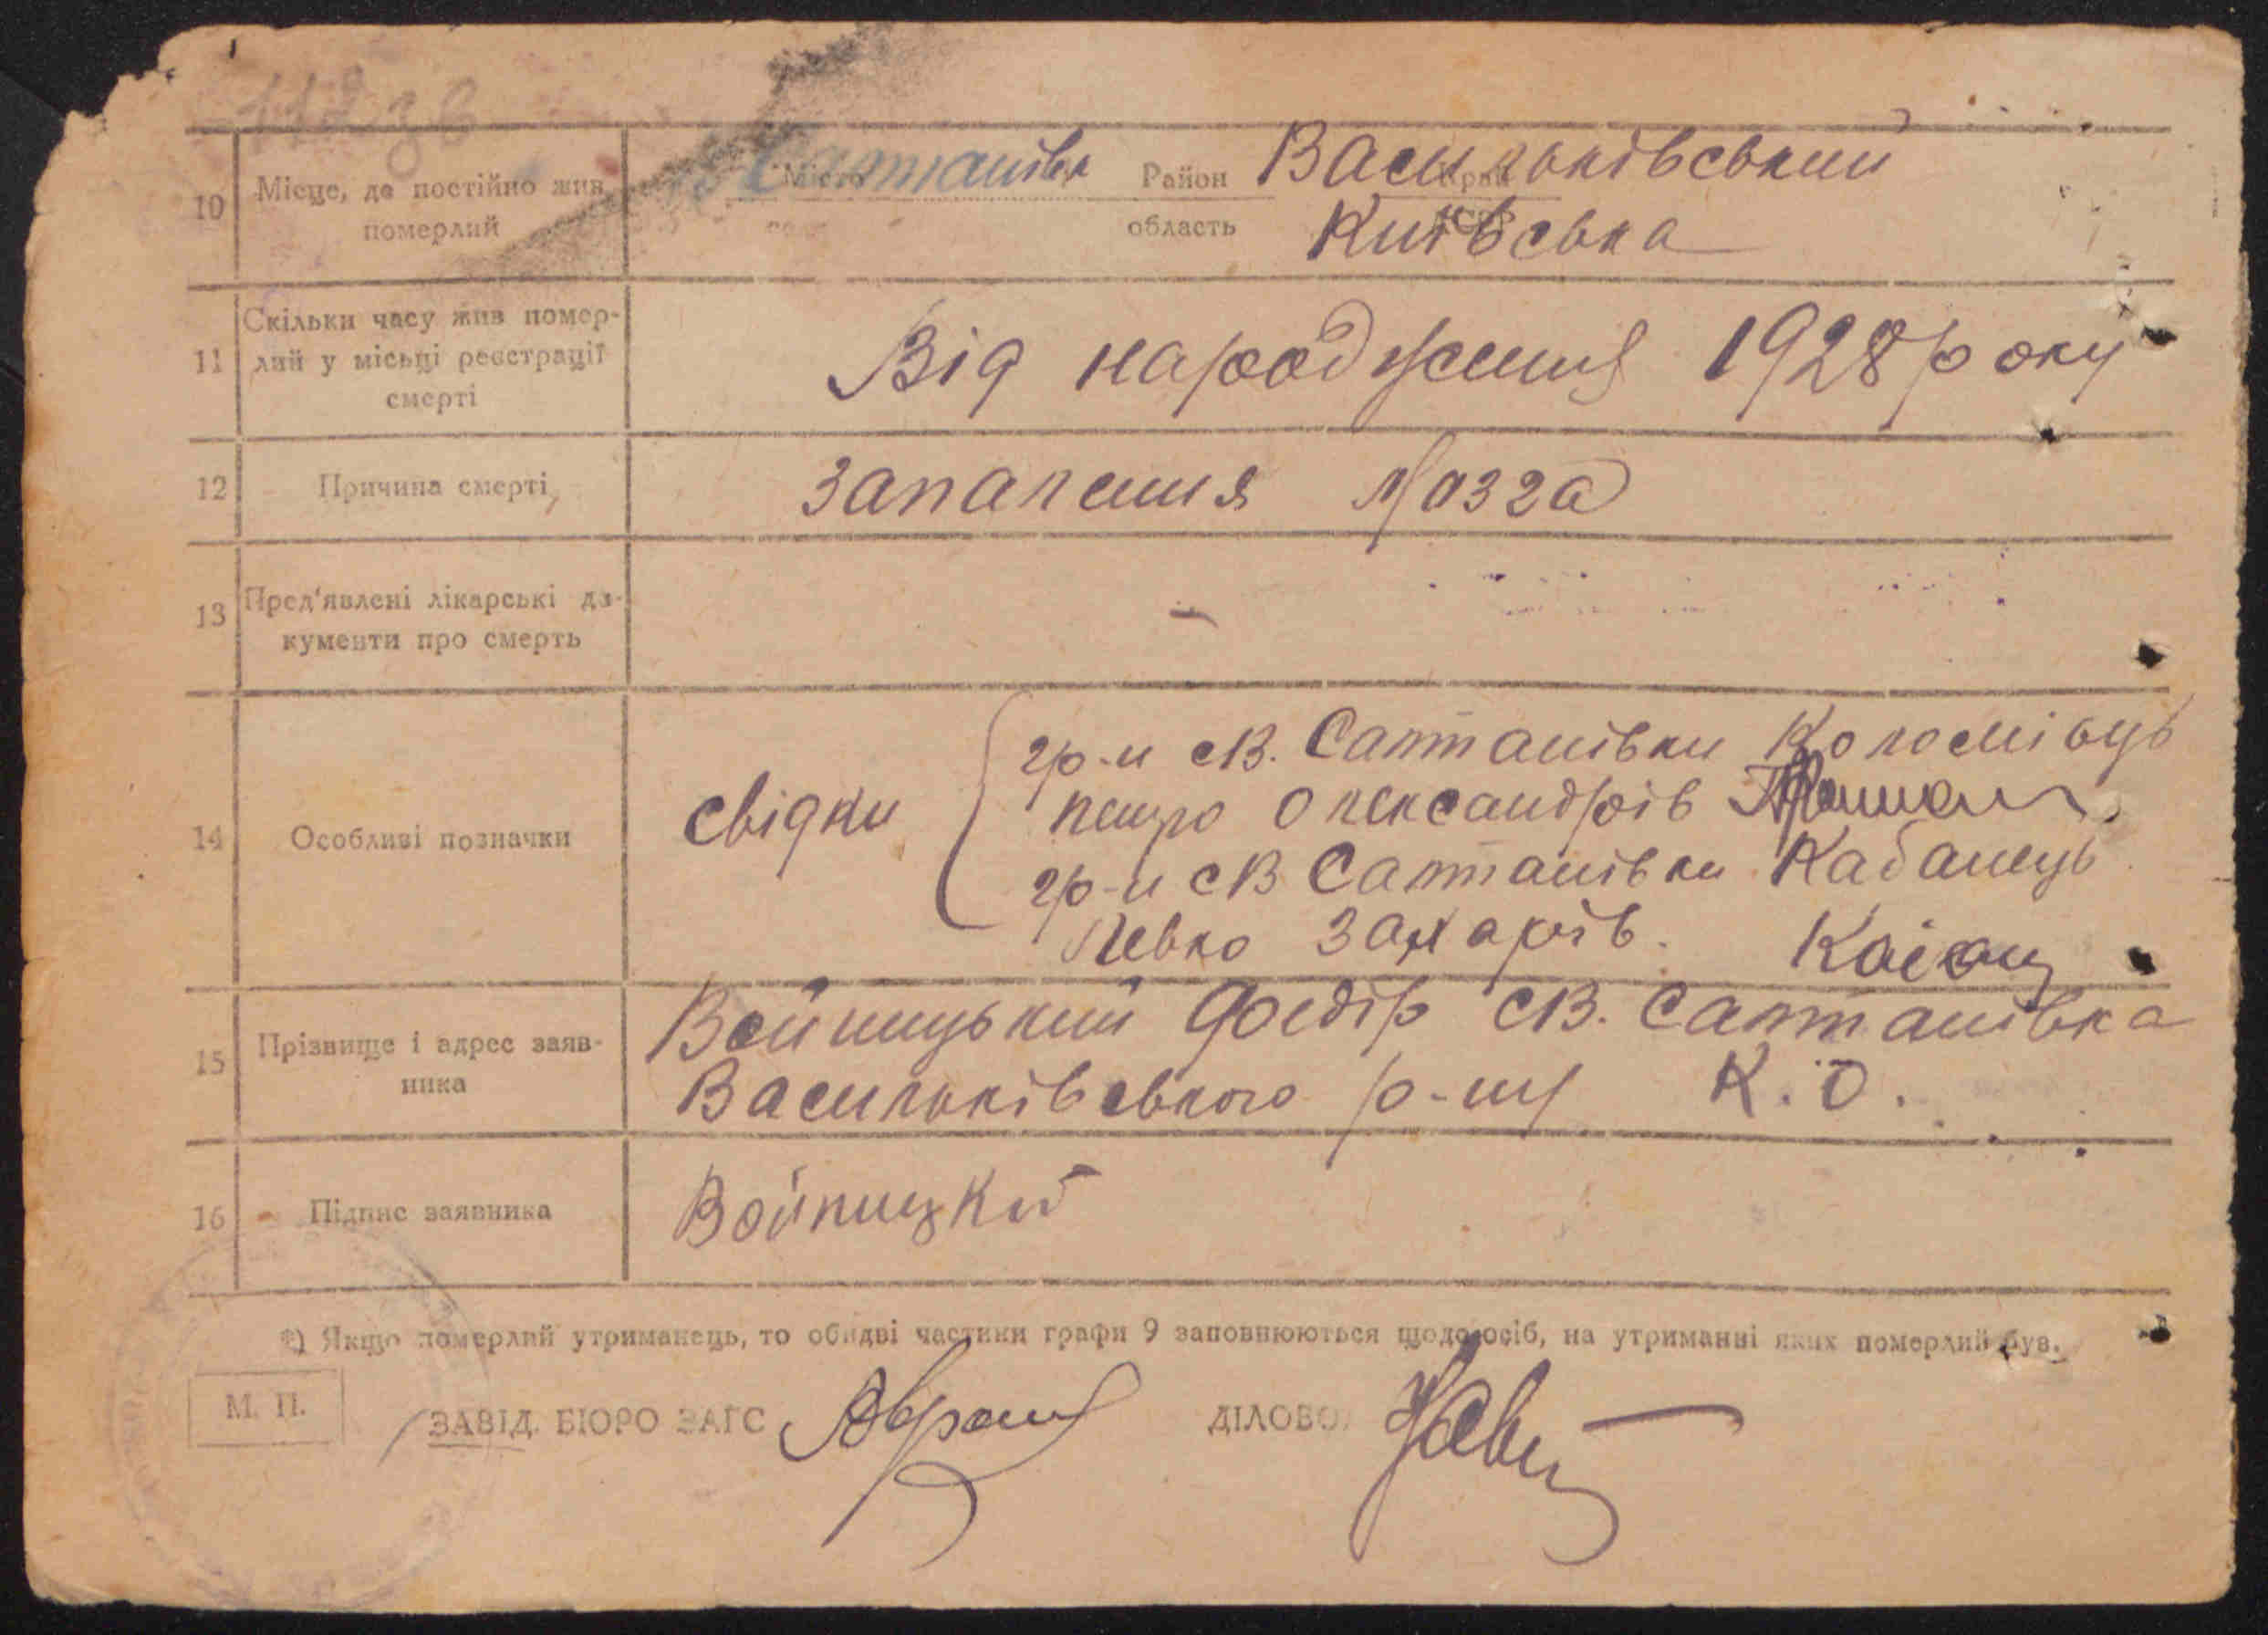 10 Місце, де постійно жив померлий
Місто Салтанівка Район Васильківський
село область Київська
11 Скільки часу жив помер-
лий у місьці реєстрації
смерті
Від народження 1928 року
12 Причина смерті
Запалення Мозга
13 Пред'явлені лікарські до-
кументи про смерть
—
14 Особливі позначки
свідки
гр-н св. Салтанівки Коломієць
Петро Олександрів
гр-н св Салтанівки Кабанець
Левко Захарів.
15 Прізвище і адрес заяв-
ника
Войницький Федір св. Салтанівка
Васильківського р-ну К.О.
16 Підпис заявника
Войницкий
*) Якщо померлий утриманець, то обидві частини графи 9 заповнюються щодо осіб, на утриманні яких померлий був.
М. П.
ЗАВІД. БЮРО ЗАГС ДІЛОВОД